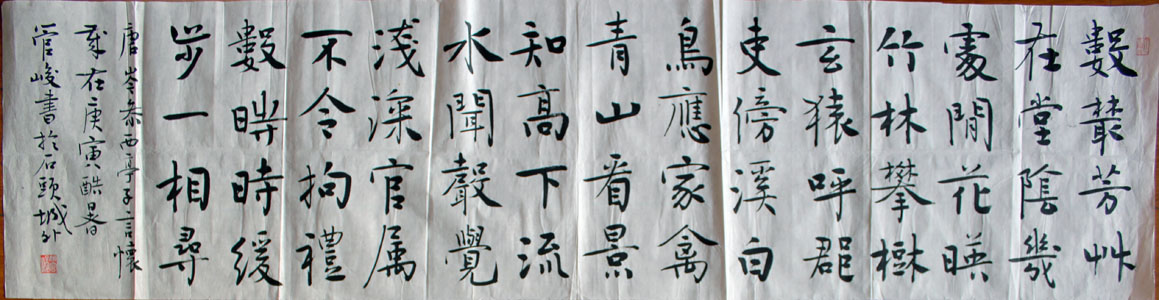 數叢芳艸
在堂陰幾
處閒花暎
竹林攀樹
玄猿呼郡
吏傍溪白
鳥應家禽
青山看景
知高下流
水聞聲覺
淺深官属
不令拘禮
數時時緩
步一相尋
唐岑參西亭子言懷
歲在庚寅酷暑
管峻書於石頭城外